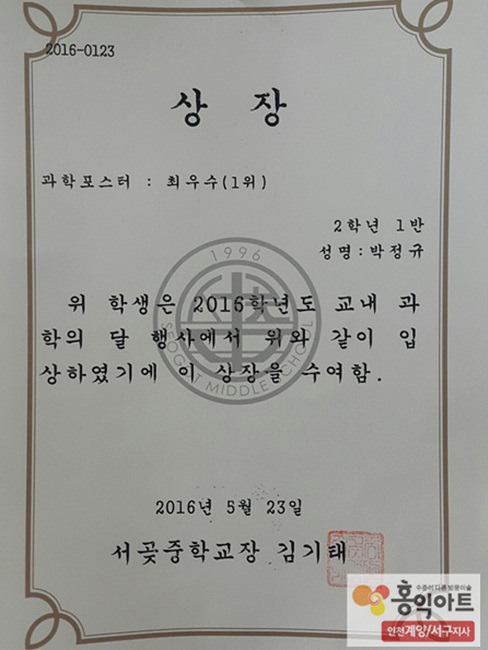 2016-0123
상 장
과학포스터 : 최우수(1위)
2학년 1반
성명:박정규
1996
SEOGOT MIDDLE SCHOOL
위 학생은 2016학년도 교내 과
학의 달 행사에서 위와 같이 입
상하였기에 이 상장을 수여함.
2016년 5월 23일
서곶중학교장 김기태
수준이 다른 방문미술
홍익아트
인천계양/서구지사